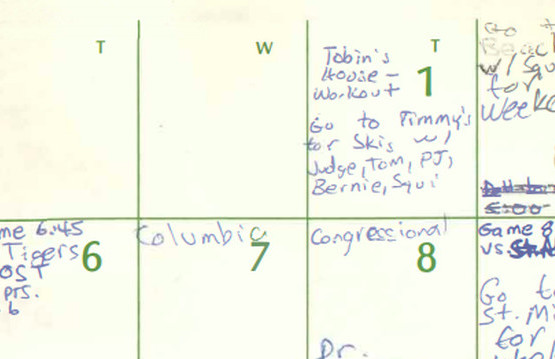 T
W
T
1
Tobin's
House -
Workout
Go to Timmy's
for Skis w/
Judge, Tom, PJ,
Bernie, Squi
Go t
w/ Squ
for
Weeke
6
me 6:45
Tigers
OST
Pts.
6
7
Columbia
8
Congressional
Dr.
Game 8
vs.
Go to
St. Mi
for